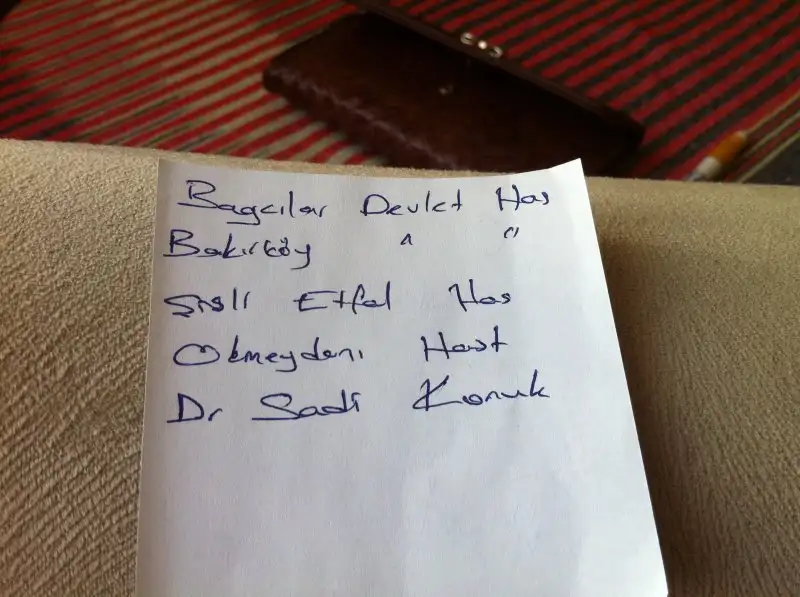 Bagcılar Devlet Has
Bakırköy " "
Şişli Etfal Has
Okmeydanı Hast
Dr Sadi Konuk